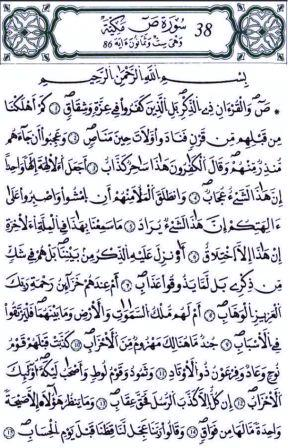 38 سُورَةُ صٓ مَكِّيَّة
وَهِيَ سِتٌّ وَثَمَانُونَ ءَايَة 86
بِسْمِ اللَّهِ الرَّحْمَٰنِ الرَّحِيمِ
* صٓ وَالْقُرْءَانِ ذِي الذِّكْرِ بَلِ الذِينَ كَفَرُوا فِي عِزَّةٍ وَشِقَاقٍ 1 كَمَ اهْلَكْنَا
مِن قَبْلِهِم مِّن قَرْنٍ فَنَادَوا وَّلَاتَ حِينَ مَنَاصٍ 2 وَعَجِبُوا أَن جَاءَهُم
مُّنذِرٌ مِّنْهُمْ وَقَالَ الْكَٰفِرُونَ هَٰذَا سَٰحِرٌ كَذَّابٌ 3 اَجَعَلَ الَالِهَةَ إِلَٰهاً وَٰحِداً
اِنَّ هَٰذَا لَشَيْءٌ عُجَابٌ 4 وَانطَلَقَ الْمَلَأُ مِنْهُمُ أَنِ امْشُوا وَاصْبِرُوا عَلَىٰ
ءَالِهَتِكُمُ إِنَّ هَٰذَا لَشَيْءٌ يُرَادُ 5 مَا سَمِعْنَا بِهَٰذَا فِي الْمِلَّةِ الَاخِرَةِ
إِنْ هَٰذَا إِلَّا اَخْتِلَٰقٌ 6 اَٰ۟نزِلَ عَلَيْهِ الذِّكْرُ مِن بَيْنِنَا بَلْ هُمْ فِي شَكٍّ
مِّن ذِكْرِي بَل لَّمَّا يَذُوقُوا عَذَابِ 7 أَمْ عِندَهُمْ خَزَائِنُ رَحْمَةِ رَبِّكَ
الْعَزِيزِ الْوَهَّابِ 8 أَمْ لَهُم مُّلْكُ السَّمَٰوَٰتِ وَالَارْضِ وَمَا بَيْنَهُمَا فَلْيَرْتَقُوا
فِي الَاسْبَٰبِ 9 جُندٌ مَّا هُنَالِكَ مَهْزُومٌ مِّنَ الَاحْزَابِ 10 كَذَّبَتْ قَبْلَهُمْ قَوْمُ
نُوحٍ وَعَادٌ وَفِرْعَوْنُ ذُو الَاوْتَادِ 11 وَثَمُودُ وَقَوْمُ لُوطٍ وَأَصْحَٰبُ لَيْكَةَ أُوْلَٰئِكَ
الَاحْزَابُ 12 إِن كُلٌّ اِلَّا كَذَّبَ الرُّسُلَ فَحَقَّ عِقَابِ 13 وَمَا يَنظُرُ هَٰؤُلَاءِ إِلَّا صَيْحَةً
وَٰحِدَةً مَّا لَهَا مِن فَوَاقٍ 14 وَقَالُوا رَبَّنَا عَجِّل لَّنَا قِطَّنَا قَبْلَ يَوْمِ الْحِسَابِ 15